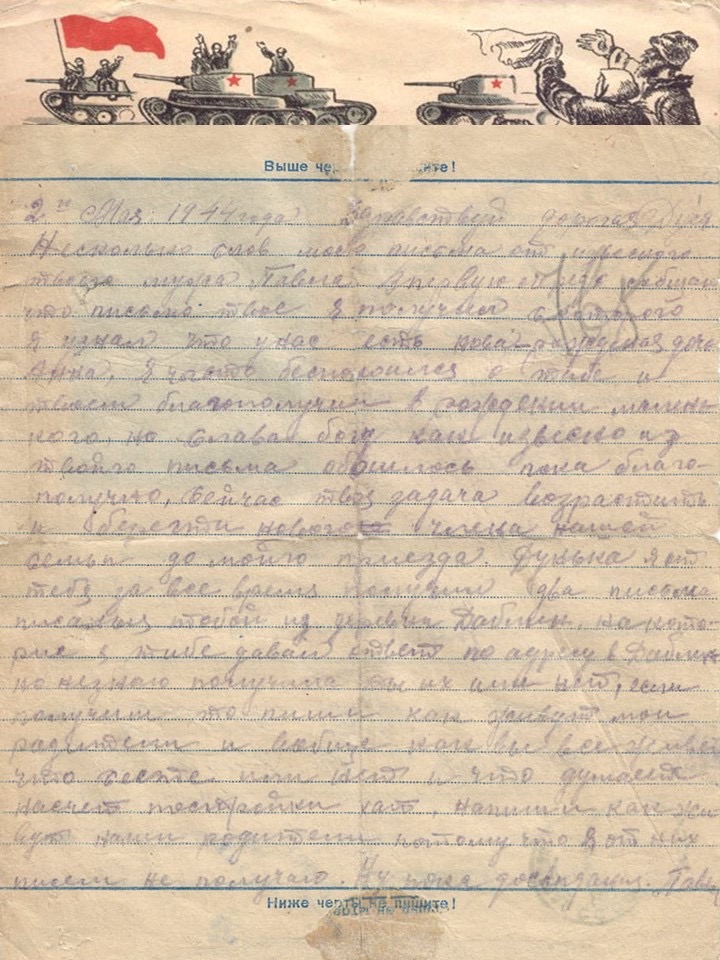 Выше че ите!
2го Мая 1944 года Здравствуй дорогая
Несколько слов моего письма от известного
твоего мужа Павла. В первую сообщаю
что письмо твое я получил с которого
я узнал что у нас есть новарожденая дочь
Анна, я часто беспокоился о тебе и
твоем благополучии в рождении малень-
кого, но слава богу как извесно из
твойго письма обошлось пока благо-
получно, сейчас твоя задача возрастить
и беретти нового члена нашей
семьи до мойго приезда. Дунька я от
тебя за все время получил два письма
писаных тобой из деревни Даблин, на кото-
рые я тибе давал ответ по адресу в Даблин
но незнаю получила ты их или нет, если
получил то пиши как живут мои
родители и вобще как вы все живете
что сеете или нет и что думаете
насчет постройки хат, напиши как жи-
вут наши родители потому что я от них
писем не получаю. Ну пока досвидания. Павел
Ниже черты не пишите!